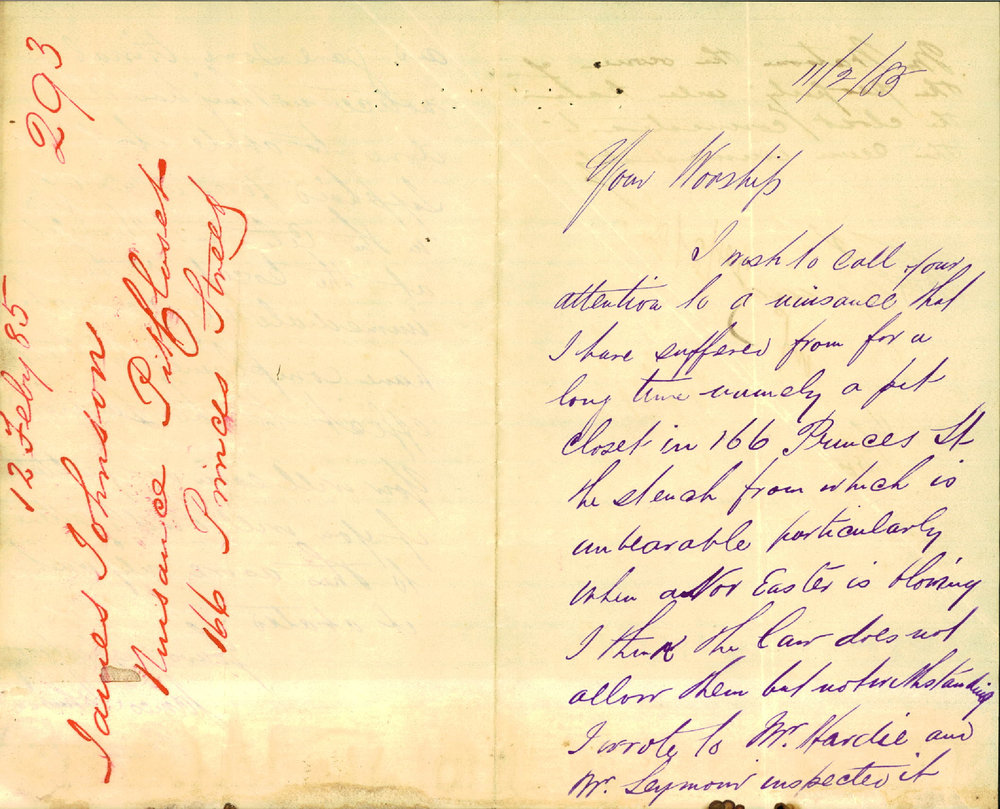 293
12 Feby 85
James Johnson
Nuisance Pit Closet
166 Princes Street
11/2/85
Your Worship
I wish to call your
attention to a nuisance that
I have suffered from for a
long time namely a pit
closet in 166 Princes St
the stench from which is
unbearable particularly
when a Nor Easter is blowing
I think the law does not
allow them but notwithstanding
I wrote to Mr. Hardie and
Mr. Seymour inspected it